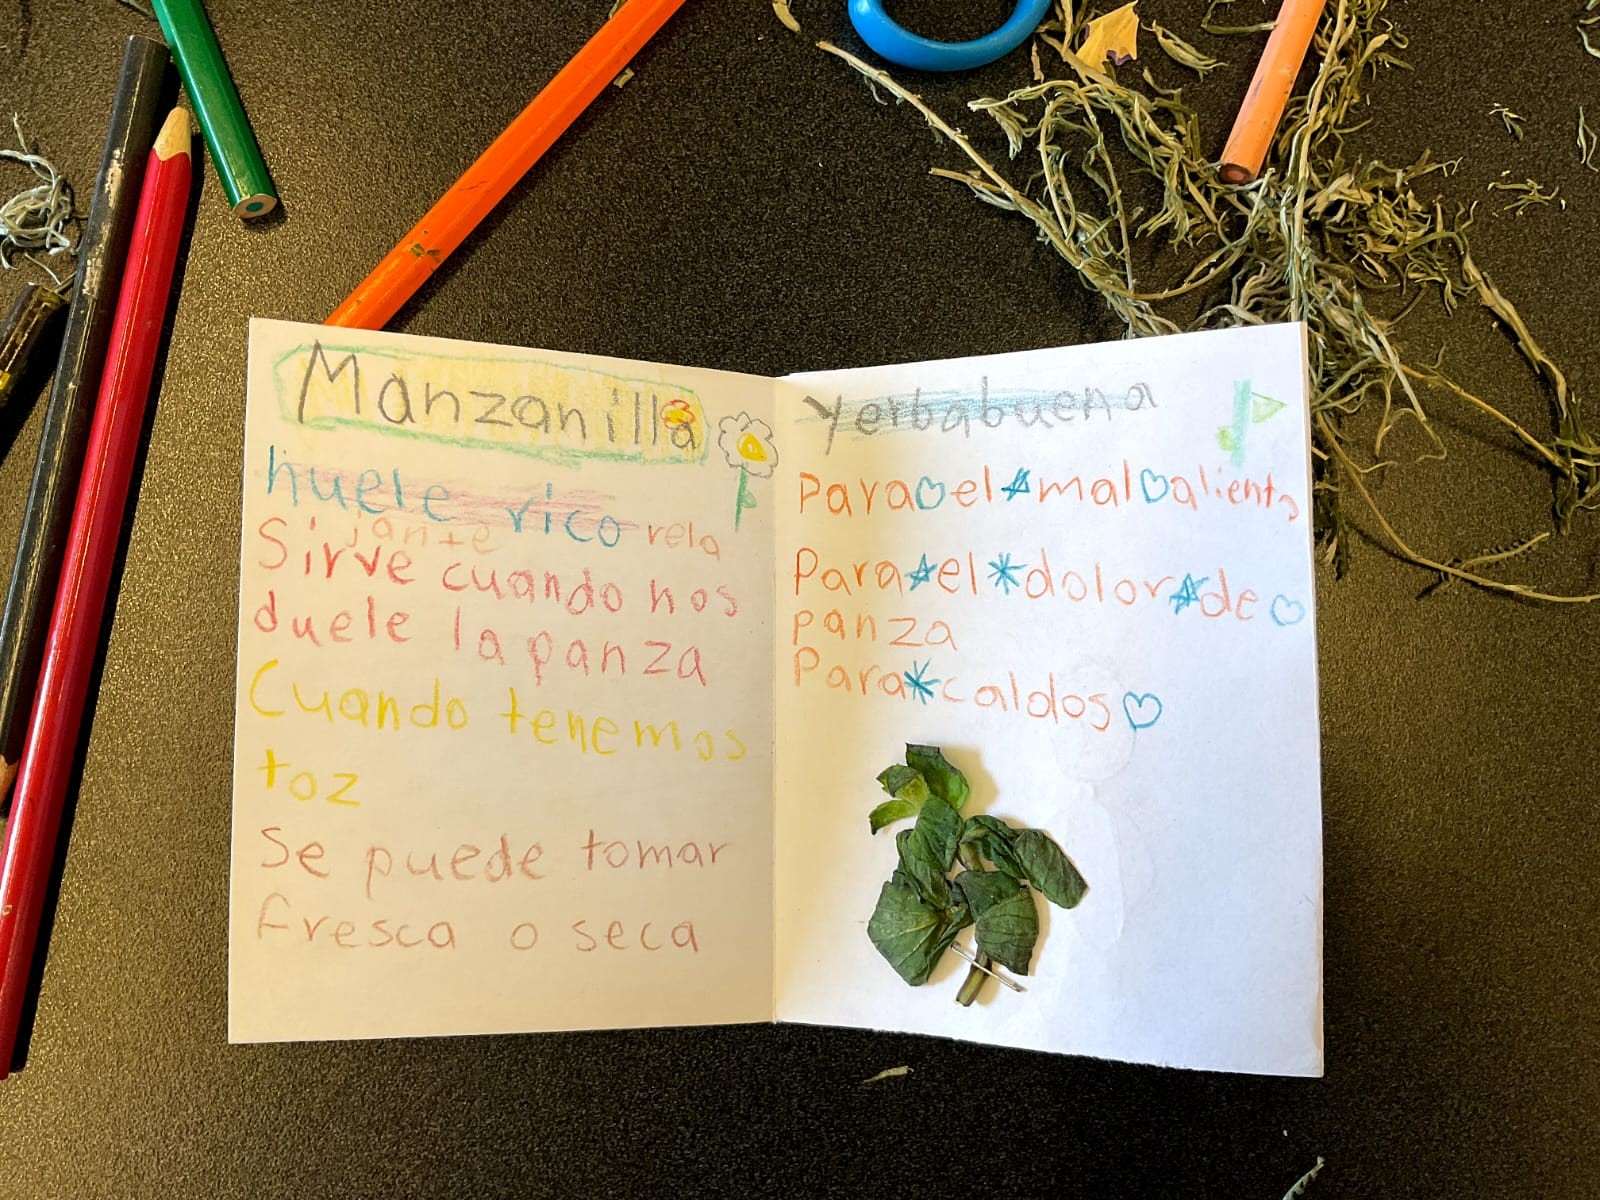 Manzanilla
huele rico rela
jante
Sirve cuando nos
duele la panza
Cuando tenemos
toz
Se puede tomar
fresca o seca
Yerbabuena
Para el mal aliento
Para el dolor de
panza
Para caldos